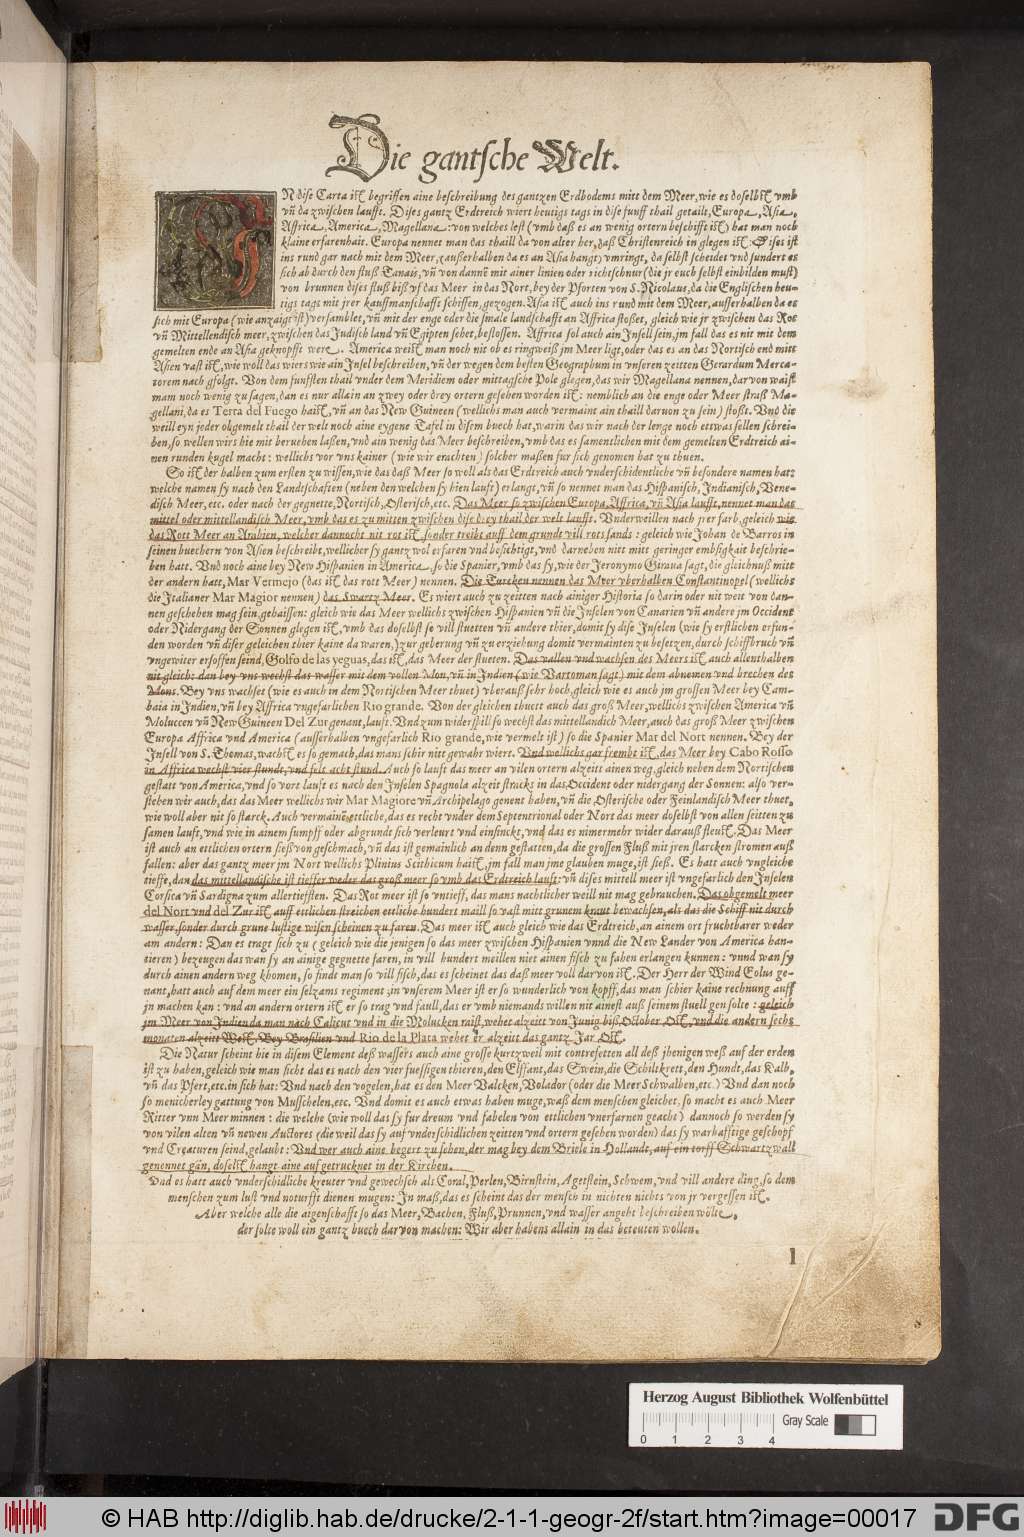 Die gantsche Welt.
IN dise Carta ist begriffen aine beschreibung des gantzen Erdbodems mitt dem Meer, wie es doselbst vmb
vñ da zwischen laufft. Dises gantz Erdtreich wiert heutigs tags in dise funff thail getailt, Europa, Asia,
Affrica, America, Magellana: von welches lest (vmb daß es an wenig ortern beschifft ist) hat man noch
klaine erfarenhait. Europa nennet man das thaill da von alter her, daß Christenreich in glegen ist: Dises ist
ins rund gar nach mit dem Meer, (ausserhalben da es an Asia hangt) vmringt, da selbst scheidet vnd sundert es
sich ab durch den fluß Tanais, vñ von dannē mit ainer linien oder richtschnur (die jr euch selbst einbilden must)
von brunnen dises fluß biß vf das Meer in das Nort, bey der Pforten von S. Nicolaus, da die Englischen heu-
tigs tags mit jrer kauffmanschafft schiffen, gezogen. Asia ist auch ins rund mit dem Meer, ausserhalben da es
sich mit Europa (wie anzaigt ist) versamlet, vñ mit der enge oder die smale landschafft an Affrica stoßet, gleich wie jr zwischen das Rot
vñ Mittellendisch meer, zwischen das Judisch land vñ Egipten sehet, bestossen. Affrica sol auch ain Insell sein, jm fall das es nit mit dem
gemelten ende an Asia geknopfft were. America weist man noch nit ob es ringweiß jm Meer ligt, oder das es an das Nortisch end mitt
Asien vast ist, wie woll das wiers wie ain Insel beschreiben, vñ der wegen dem besten Geographum in vnseren zeitten Gerardum Merca-
torem nach gfolgt. Von dem funfften thail vnder dem Meridiem oder mittagsche Pole glegen, das wir Magellana nennen, dar von waist
mam noch wenig zu sagen, dan es nur allain an zwey oder drey ortern gesehen worden ist: nemblich an die enge oder Meer straß Ma-
gellani, da es Terra del Fuego haist, vñ an das New Guineen (wellichs man auch vermaint ain thaill daruon zu sein) stoßt. Vnd die
weill eyn jeder obgemelt thail der welt noch aine eygene Tafel in disem buech hat, warin das wir nach der lenge noch ettwas sellen schrei-
ben, so wellen wirs hie mit beruehen laßen, vnd ain wenig das Meer beschreiben, vmb das es samentlichen mit dem gemelten Erdtreich ai-
nen runden kugel macht: wellichs vor vns kainer (wie wir erachten) solcher maßen fur sich genomen hat zu thuen.
So ist der halben zum ersten zu wissen, wie das daß Meer so woll als das Erdtreich auch vnderschidentliche vñ besondere namen hat:
welche namen sy nach den Landtschaften (neben den welchen sy hien lauft) erlangt, vñ so nennet man das Hispanisch, Indianisch, Vene-
disch Meer, etc. oder nach der gegnette, Nortisch, Osterisch, etc. Das Meer so zwischen Europa, Affrica, vñ Asia laufft, nennet man das
mittel oder mittellandisch Meer, vmb das es zu mitten zwischen dise drey thail der welt laufft. Vnderweillen nach jrer farb, gleich wie
das Rott Meer an Arabien, welcher dannocht nit rot ist sonder treibt auff dem grundt vill rots sands: geleich wie Johan de Barros in
seinen buechern von Asien beschreibt, wellicher sy gantz wol erfaren vnd besichtigt, vnd darneben nitt mitt geringer embsigkait beschrie-
ben hatt. Vnd noch aine bey New Hispanien in America, so die Spanier, vmb das sy, wie der Jeronymo Giraua sagt, die gleichnuß mitt
der andern hatt, Mar Vermejo (das ist das rott Meer) nennen. Die Turcken nennen das Meer vberhalben Constantinopel (wellichs
die Italianer Mar Magior nennen) das Swartz Meer. Es wiert auch zu zeitten nach ainiger Historia so darin oder nit weit von dan-
nen geschehen mag sein gehaissen: gleich wie das Meer wellichs zwischen Hispanien vñ die Inselen von Canarien vñ andere jm Occident
oder Nidergang der Sonnen glegen ist, vmb das doselbst so vill stuetten vñ andere thier, domit sy dise Inselen (wie sy erstlichen erfun-
den worden vñ diser geleichen thier kaine da waren,) zur geberung vñ zu erziehung domit vermainten zu besetzen, durch schiffbruch vñ
vngewiter ersoffen seind, Golfo de las yeguas, das ist, das Meer der stueten. Das vallen vnd wachsen des Meers ist auch allenthalben
nit gleich: dan bey vns wechst das wasser mit dem vollen Mon, vñ in Indien (wie Vartoman sagt) mit dem abnemen vnd brechen des
Mons. Bey vns wachset (wie es auch in dem Nortischen Meer thuet) vberauß sehr hoch, gleich wie es auch jm grossen Meer bey Cam-
baia in Indien, vñ bey Affrica vngefarlichen Rio grande. Von der gleichen thuett auch das groß Meer, wellichs zwischen America vñ
Moluccen vñ New Guineen Del Zur genant, lauft. Vnd zum widerspill so wechst das mittellandich Meer, auch das groß Meer zwischen
Europa Affrica vnd America (ausserhalben vngefarlich Rio grande, wie vermelt ist) so die Spanier Mar del Nort nennen. Bey der
Insell von S. Thomas, wachst es so gemach, das mans schir nitt gewahr wiert. Vnd wellichs gar frembt ist, das Meer bey Cabo Rosso
in Affrica wechst vier stundt, vnd felt acht stund. Auch so lauft das meer an vilen ortern alzeitt ainen weg, gleich neben dem Nortischen
gestatt von America, vnd so vort lauft es nach den Inselen Spagnola alzeit stracks in das Occident oder nidergang der Sonnen: also ver-
stehen wir auch, das das Meer wellichs wir Mar Magiore vñ Archipelago genent haben, vñ die Osterische oder Feinlandisch Meer thuet,
wie woll aber nit so starck. Auch vermaine ettliche, das es recht vnder dem Septentrional oder Nort das meer doselbst von allen seitten zu
samen lauft, vnd wie in ainem sumpff oder abgrundt sich verleurt vnd einsinckt, vnd das es nimermehr wider darauß fleust. Das Meer
ist auch an ettlichen ortern sießvon geschmach, vñ das ist gemainlich an denn gestatten, da die grossen Fluß mit jren starcken stromen auß
fallen: aber das gantz meer jm Nort wellichs Plinius Scithicum haist, jm fall man jme glauben muge, ist sieß. Es hatt auch vngleiche
tieffe, dan das mittellandische ist tieffer weder das groß meer so vmb das Erdtreich lauft: vñ dises mittell meer ist vngefarlich den Inselen
Corsica vñ Sardigna zum allertieffsten. Das Rot meer ist so vntieff, das mans nachtlicher weill nit mag gebrauchen. Das obgemelt meer
del Nort vnd del Zur ist auff ettlichen streichen ettliche hundert maill so vast mitt grunem kraut bewachsen, als das die Schiff nit durch
wasser, sonder durch grune lustige wisen scheinen zu faren. Das meer ist auch gleich wie das Erdtreich, an ainem ort fruchtbarer weder
am andern: Dan es tragt sich zu (geleich wie die jenigen so das meer zwischen Hispanien vnnd die New Lander von America han-
tieren) bezeugen das wan sy an ainige gegnette faren, in vill hundert meillen nier ainen fisch zu sahen erlangen kunnen: vnnd wan sy
durch ainen andern weg khomen, so findt man so vill fisch, das es scheinet das daß meer voll darvon ist. Der Herr der Wind Eolus ge-
nant, hatt auch auf dem meer ein selzams regiment: in vnserem Meer ist er so wunderlich von kopff, das man schier kaine rechnung auff
jn machen kan: vnd an andern ortern ist er so trag vnd faull, das er vmb niemands willen nit ainest auß seinem stuell gen solte: geleich
jm Meer von Indien da man nach Calicut vnd in die Molucken raist, wehet alzeitt von Junig biß October Ost, vnd die andern sechs
monaten alzeitt West. Bey Brasilien vnd Rio de la Plata wehet er alzeitt das gantz Jar Ost.
Die Natur scheint hie in disem Element deß wassers auch aine grosse kurtzweil mit contrefetten all deß jhenigen weß auf der erden
ist zu haben, geleich wie man sicht das es nach den vier fuessigen thieren, den Elffant, das Swein, die Schiltkrett, den Hundt, das Kalb,
vñ das Pfert, etc. in sich hat: Vnd nach den vogelen, hat es den Meer Valcken, Volador (oder die Meer Schwalben, etc.) Vnd dan noch
so menicherley gattung von Musschelen, etc. Vnd domit es auch etwas haben muge, waß dem menschen gleichet, so macht es auch Meer
Ritter vnn Meer minnen: die welche (wie woll das sy fur dreum vnd fabelen von ettlichen vnerfarnen geacht) dannoch so werden sy
von vilen alten vñ newen Auctores (die weil das sy auf vnderschidlichen zeitten vnd ortern gesehen worden) das sy warhafftige geschopf
vnd Creaturen seind, gelaubt: Vnnd wer auch aine begert zu sehen, der mag bey dem Briele in Hollandt, auf ein torff Schwartzwall
genennet gan, doselst hangt aine auf getrucknet in der Kirchen.
Vnd es hatt auch vnderschidliche kreuter vnd gewechsch als Coral, Perlen, Birnstein, Agetstein, Schwem, vnd vill andere ding, so dem
menschen zum lust vnd noturfft dienen mugen: In maß, das es scheint das der mensch in nichten nichts von jr vergessen ist.
Aber welche alle die aigenschafft so das Meer, Bachen, Fluß, Prunnen, vnd wasser angeht beschreiben wölte,
der solte woll ein gantz buech dar von machen: Wir aber habens allain in das beteuten wollen.
1
Herzog August Bibliothek Wolfenbüttel
Gray Scale
0 1 2 3 4
© HAB http://diglib.hab.de/drucke/2-1-1-geogr-2f/start.htm?image=00017
DFG